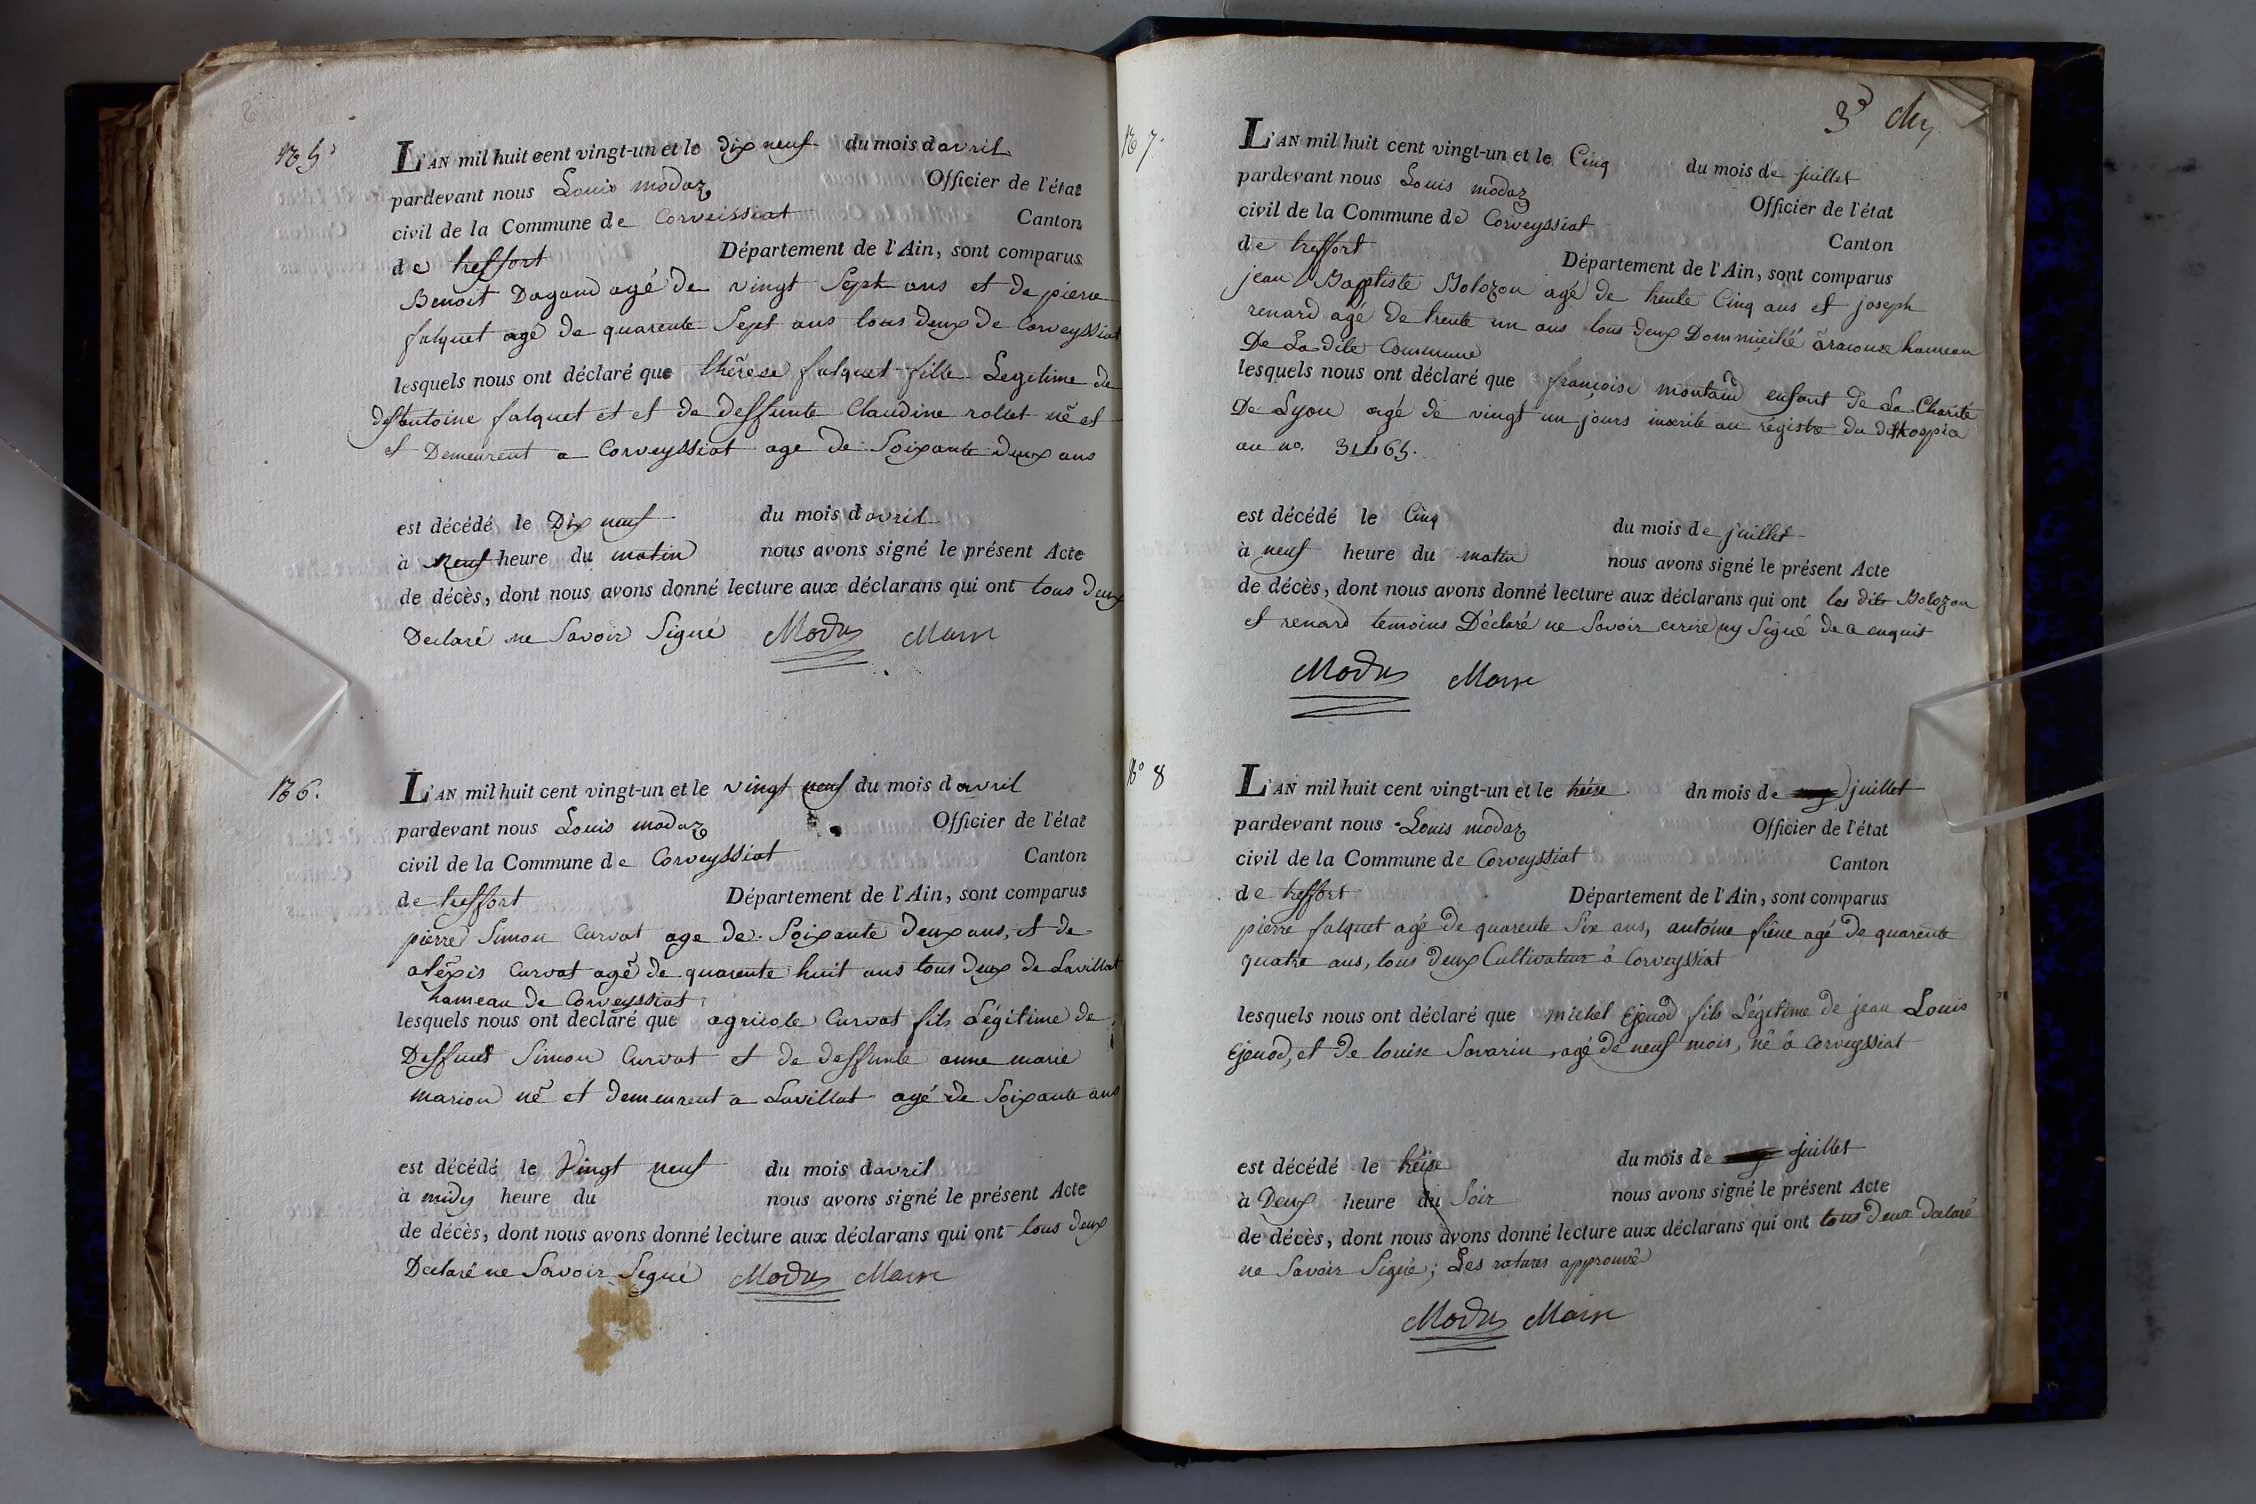 No 5
L'AN mil huit cent vingt-un et le dix neuf du mois d avril
pardevant nous Louis modaz Officier de l'état
civil de la Commune de Corveissiat Canton
de treffort Département de l'Ain, sont comparus
Benoit Dagand agé de vingt Sept ans et de pierre
falquet agé de quarente Sept ans tous deux de Corveyssiat
lesquels nous ont déclaré que thérese falquet fille Legitime de
antoine falquet et et de deffunte Claudine rollet né et
et Demeurent a Corveyssiat age de Soixante deux ans
est décédé le Dix neuf du mois d avril
à Neuf heure du matin nous avons signé le présent Acte
de décès, dont nous avons donné lecture aux déclarans qui ont tous deux
Declaré ne Savoir Signé Modas Maire
No 6.
L'AN mil huit cent vingt-un et le vingt neuf du mois d avril
pardevant nous Louis modaz Officier de l'état
civil de la Commune de Corveyssiat Canton
de treffort Département de l'Ain, sont comparus
pierre Simon Curvat age de Soixante deux ans, et de
aléxis Curvat agé de quarente huit ans tous deux de Lavillat
hameau de Corveyssiat
lesquels nous ont declaré que agricole Curvat fils Légitime de
Deffunt Simon Curvat et de deffunte anne marie
marion né et demeurent a Lavillat agé de Soixante ans
est décédé le Vingt neuf du mois d avril
à midy heure du nous avons signé le présent Acte
de décès, dont nous avons donné lecture aux déclarans qui ont tous deux
Declaré ne Savoir Signé Modas Maire
3
No 7.
L'AN mil huit cent vingt-un et le Cinq du mois de juillet
pardevant nous Louis modaz Officier de l'état
civil de la Commune de Corveyssiat Canton
de treffort Département de l'Ain, sont comparus
jean Baptiste Bolozon agé de trente Cinq ans et joseph
renard agé de trente un ans tous deux Dommicilié a racouse hameau
De La dite Commune
lesquels nous ont déclaré que françoise montain enfant de La Charité
De Lyon agé de vingt un jours inscrite au régistre du dit hospice
au no. 31465.
est décédé le Cinq du mois de juillet
à neuf heure du matin nous avons signé le présent Acte
de décès, dont nous avons donné lecture aux déclarans qui ont les dits Bolozon
et renard temoins Déclaré ne Savoir ecrire ny Signé de ce enquit
Modas Maire
No 8
L'AN mil huit cent vingt-un et le treize dn mois de juillet
pardevant nous Louis modaz Officier de l'état
civil de la Commune de Corveyssiat Canton
de treffort Département de l'Ain, sont comparus
pierre falquet agé de quarente Six ans, antoine agé de quarente
quatre ans, tous deux Cultivateur à Corveyssiat
lesquels nous ont déclaré que michel Ejenod fils Légitime de jean Louis
Ejenod, et de louise Savarin, agé de neuf mois, né à Corveyssiat
est décédé le treize du mois de juillet
à Deux heure du Soir nous avons signé le présent Acte
de décès, dont nous avons donné lecture aux déclarans qui ont tous deux declaré
ne Savoir Signé; Les ratures approuvé
Modas Maire